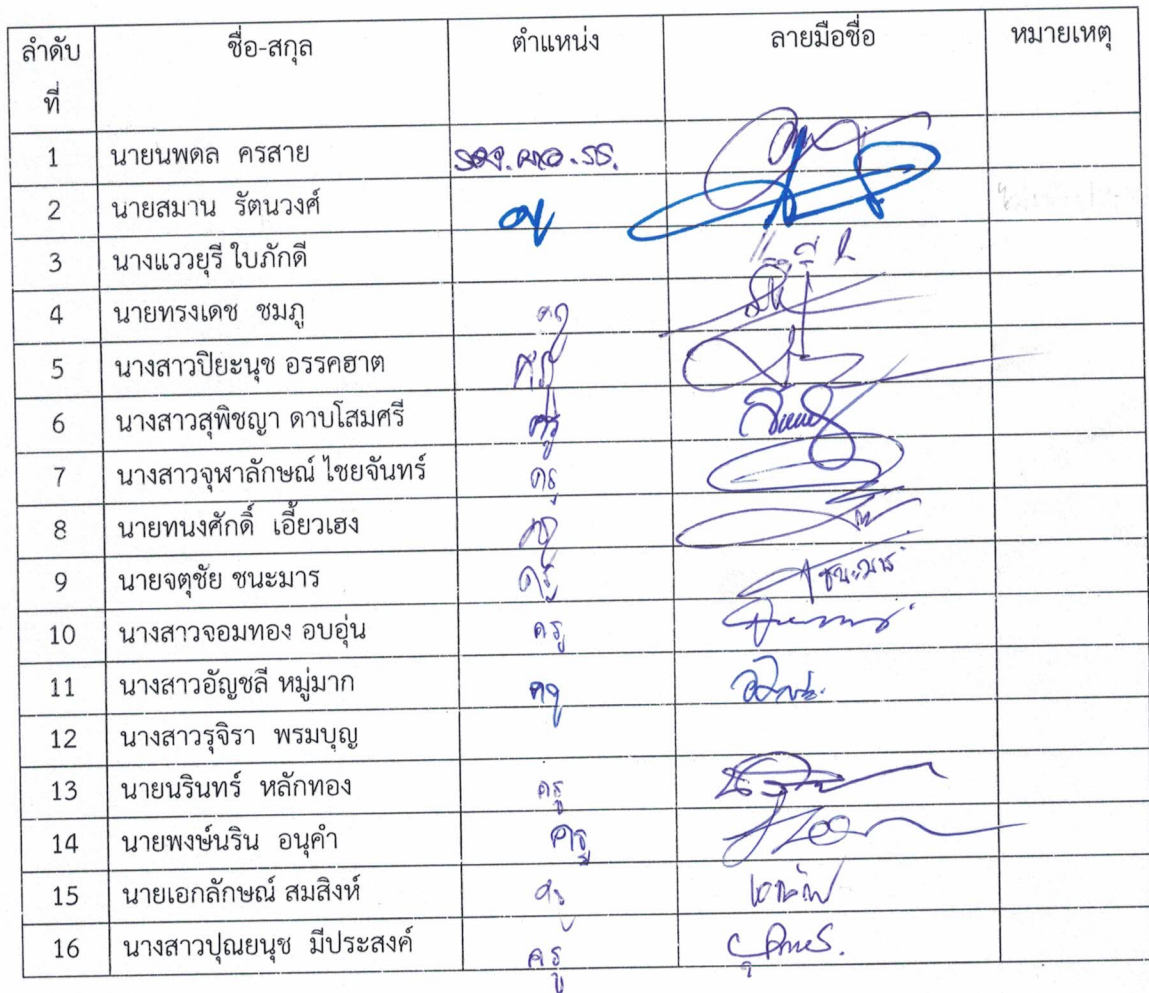 ลำดับที่ ชื่อ-สกุล ตำแหน่ง ลายมือชื่อ หมายเหตุ
1 นายนพดล ครสาย รอง.ผอ.รร.
2 นายสมาน รัตนวงศ์ ครู
3 นางแววยุรี ใบภักดี
4 นายทรงเดช ชมภู ครู
5 นางสาวปิยะนุช อรรคฮาต ครู
6 นางสาวสุพิชญา ดาบโสมศรี ครู
7 นางสาวจุฬาลักษณ์ ไชยจันทร์ ครู
8 นายทนงศักดิ์ เอี้ยวเฮง ครู
9 นายจตุชัย ชนะมาร ครู ชนะมาร
10 นางสาวจอมทอง อบอุ่น ครู
11 นางสาวอัญชลี หมู่มาก ครู
12 นางสาวรุจิรา พรมบุญ
13 นายนรินทร์ หลักทอง ครู
14 นายพงษ์นริน อนุคำ ครู
15 นายเอกลักษณ์ สมสิงห์ ครู
16 นางสาวปุณยนุช มีประสงค์ ครู